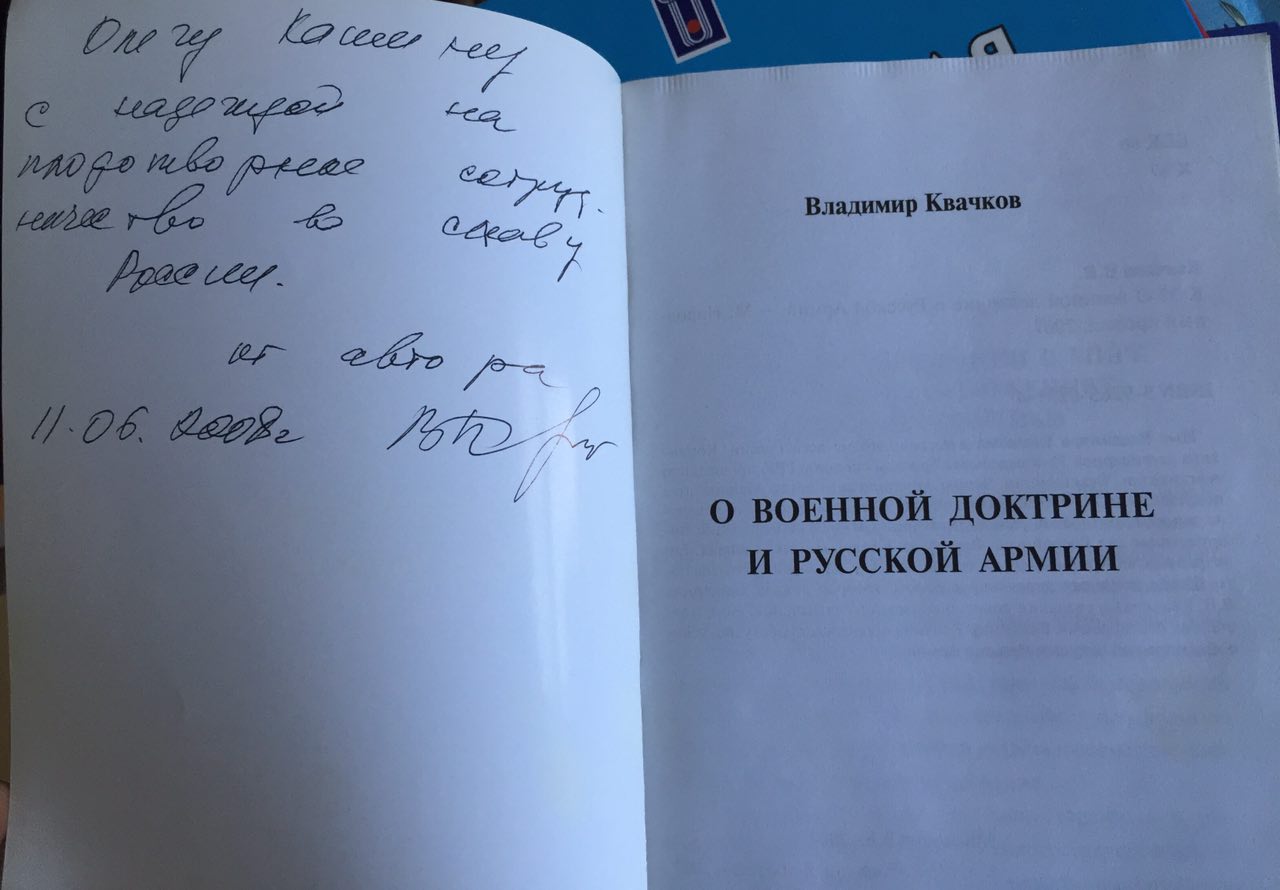 Олегу Кашину
с надеждой на
плодотворное сотруд.
ничество во славу
России.
от автора
11.06.2008г
Владимир Квачков
О ВОЕННОЙ ДОКТРИНЕ
И РУССКОЙ АРМИИ